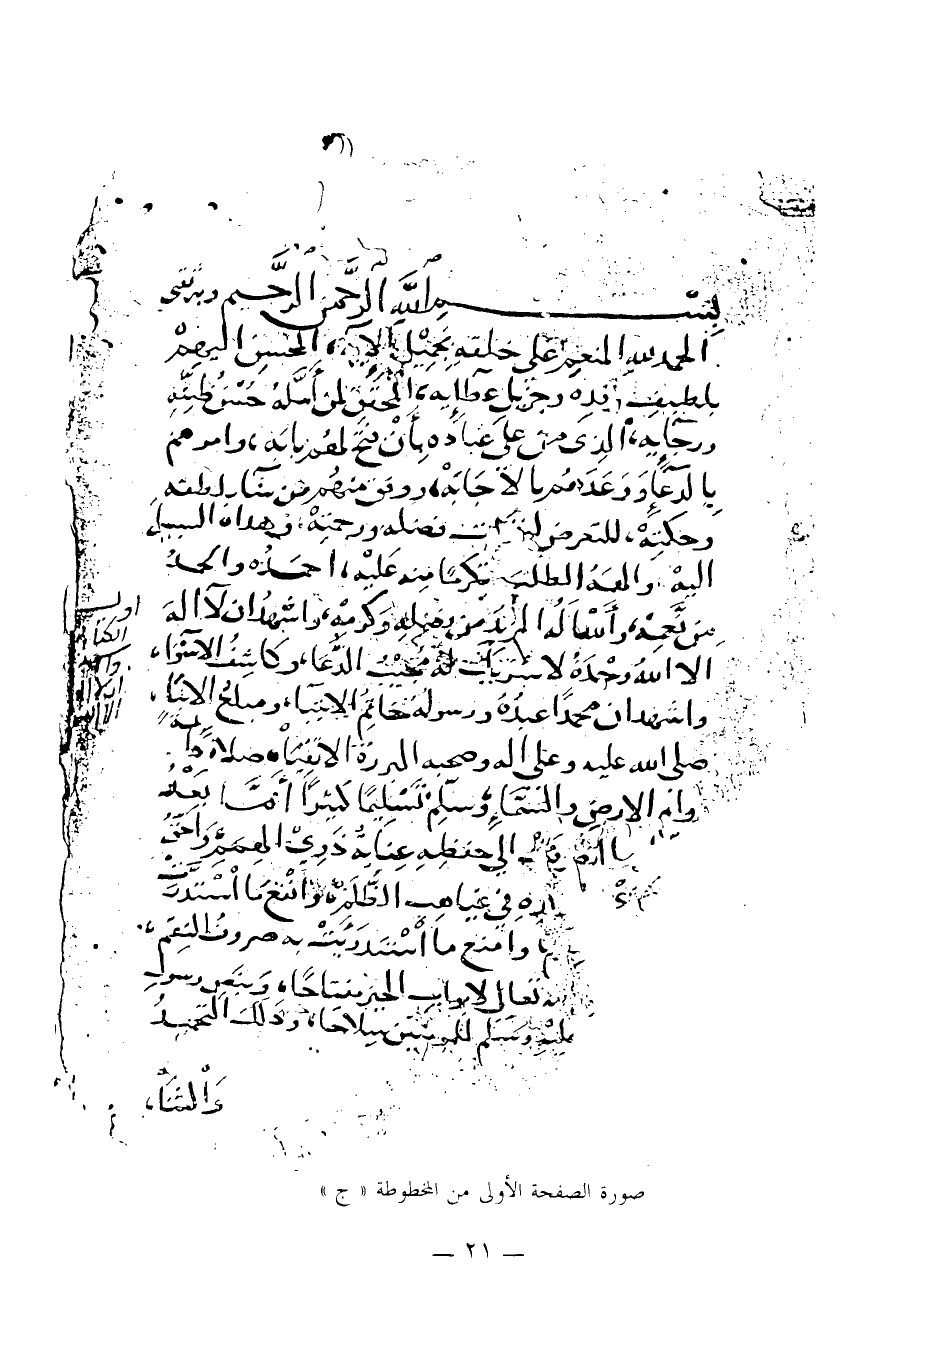 بسم الله الرحمن الرحيم وبه ثقتي
الحمد لله المنعم على خلقه بجميل الآيه، المحسن اليهم
بلطيف رفده وجزيل عطايه، المحقق لمن أمله حسن ظنه
ورجايه، الذي من على عباده بأن فتح لهم بابه، وامرهم
بالدعاء ووعدهم بالاجابة، ووفق منهم من شاء بلطفه
وحكمته، للتعرض لنفحات فضله ورحمته، وهداه السبيل
اليه والهمه الطلب تكرما منه عليه، احمده والحمد
من نعمه، وأسأله المزيد من فضله وكرمه، واشهد ان لا اله
الا الله وحده لا شريك له مجيب الدعاء، وكاشف الاسواء،
واشهد ان محمدا عبده ورسوله خاتم الانبياء، ومبلغ الانباء،
صلى الله عليه وعلى اله وصحبه البررة الاتقياء صلاة دايمة
دوام الارض والسماء، وسلم تسليما كثيرا أما بعد
الى حفظه عناية ذوي الهمم، واحق
في غياهب الظلم، وانفع ما استدرت
وامنع ما استدريت به صروف النقم،
الله تعالى لابواب الخير مفتاحا، وبنص رسول
عليه وسلم للمومنين سلاحا، وذلك التحميد
والثناء،
اول
الكتاب
صورة الصفحة الأولى من المخطوطة « ج »
— ٢١ —